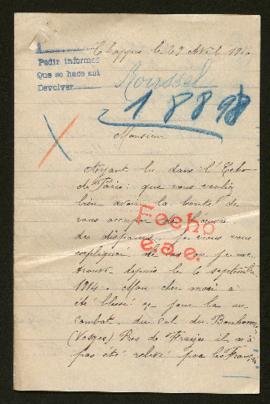 A
Pedir informes
Que se hace así
Devolver
le 29 Avril 19
Roussel
18898
Monsieur
Ayant lu dans l'Echo
de Paris que vous voulez
bien avoir la bonté de
vous occuper de
des disparus je viens vous
expliquer le cas ou je me
trouve depuis le 6 septembre
1914. Mon cher mari a
été blessé ce jour la au
combat du Col du Bonhomme
(Vosges) Pres de Fraize il n'a
pas été relevé par les Français
Fecho
e.a.e.